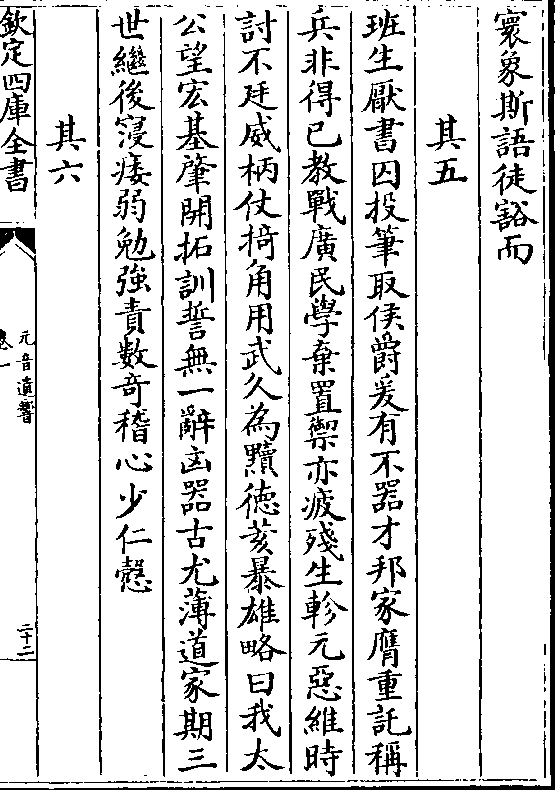 寰象斯語徒豁而
其五
班生厭書囚投筆取侯爵爰有不器才邦家膺重託稱
兵非得已教戰廣民學棄置禦亦疲殘生軫元惡維時
討不廷威柄仗掎角用武久為黷德芟暴雄略曰我太
公望宏基肇開拓訓誓無一辭凶器古尤薄道家期三
世繼後寖痿弱勉強責數奇稽心少仁愨
其六
欽定四庫全書
元音遺響
卷一
二十二